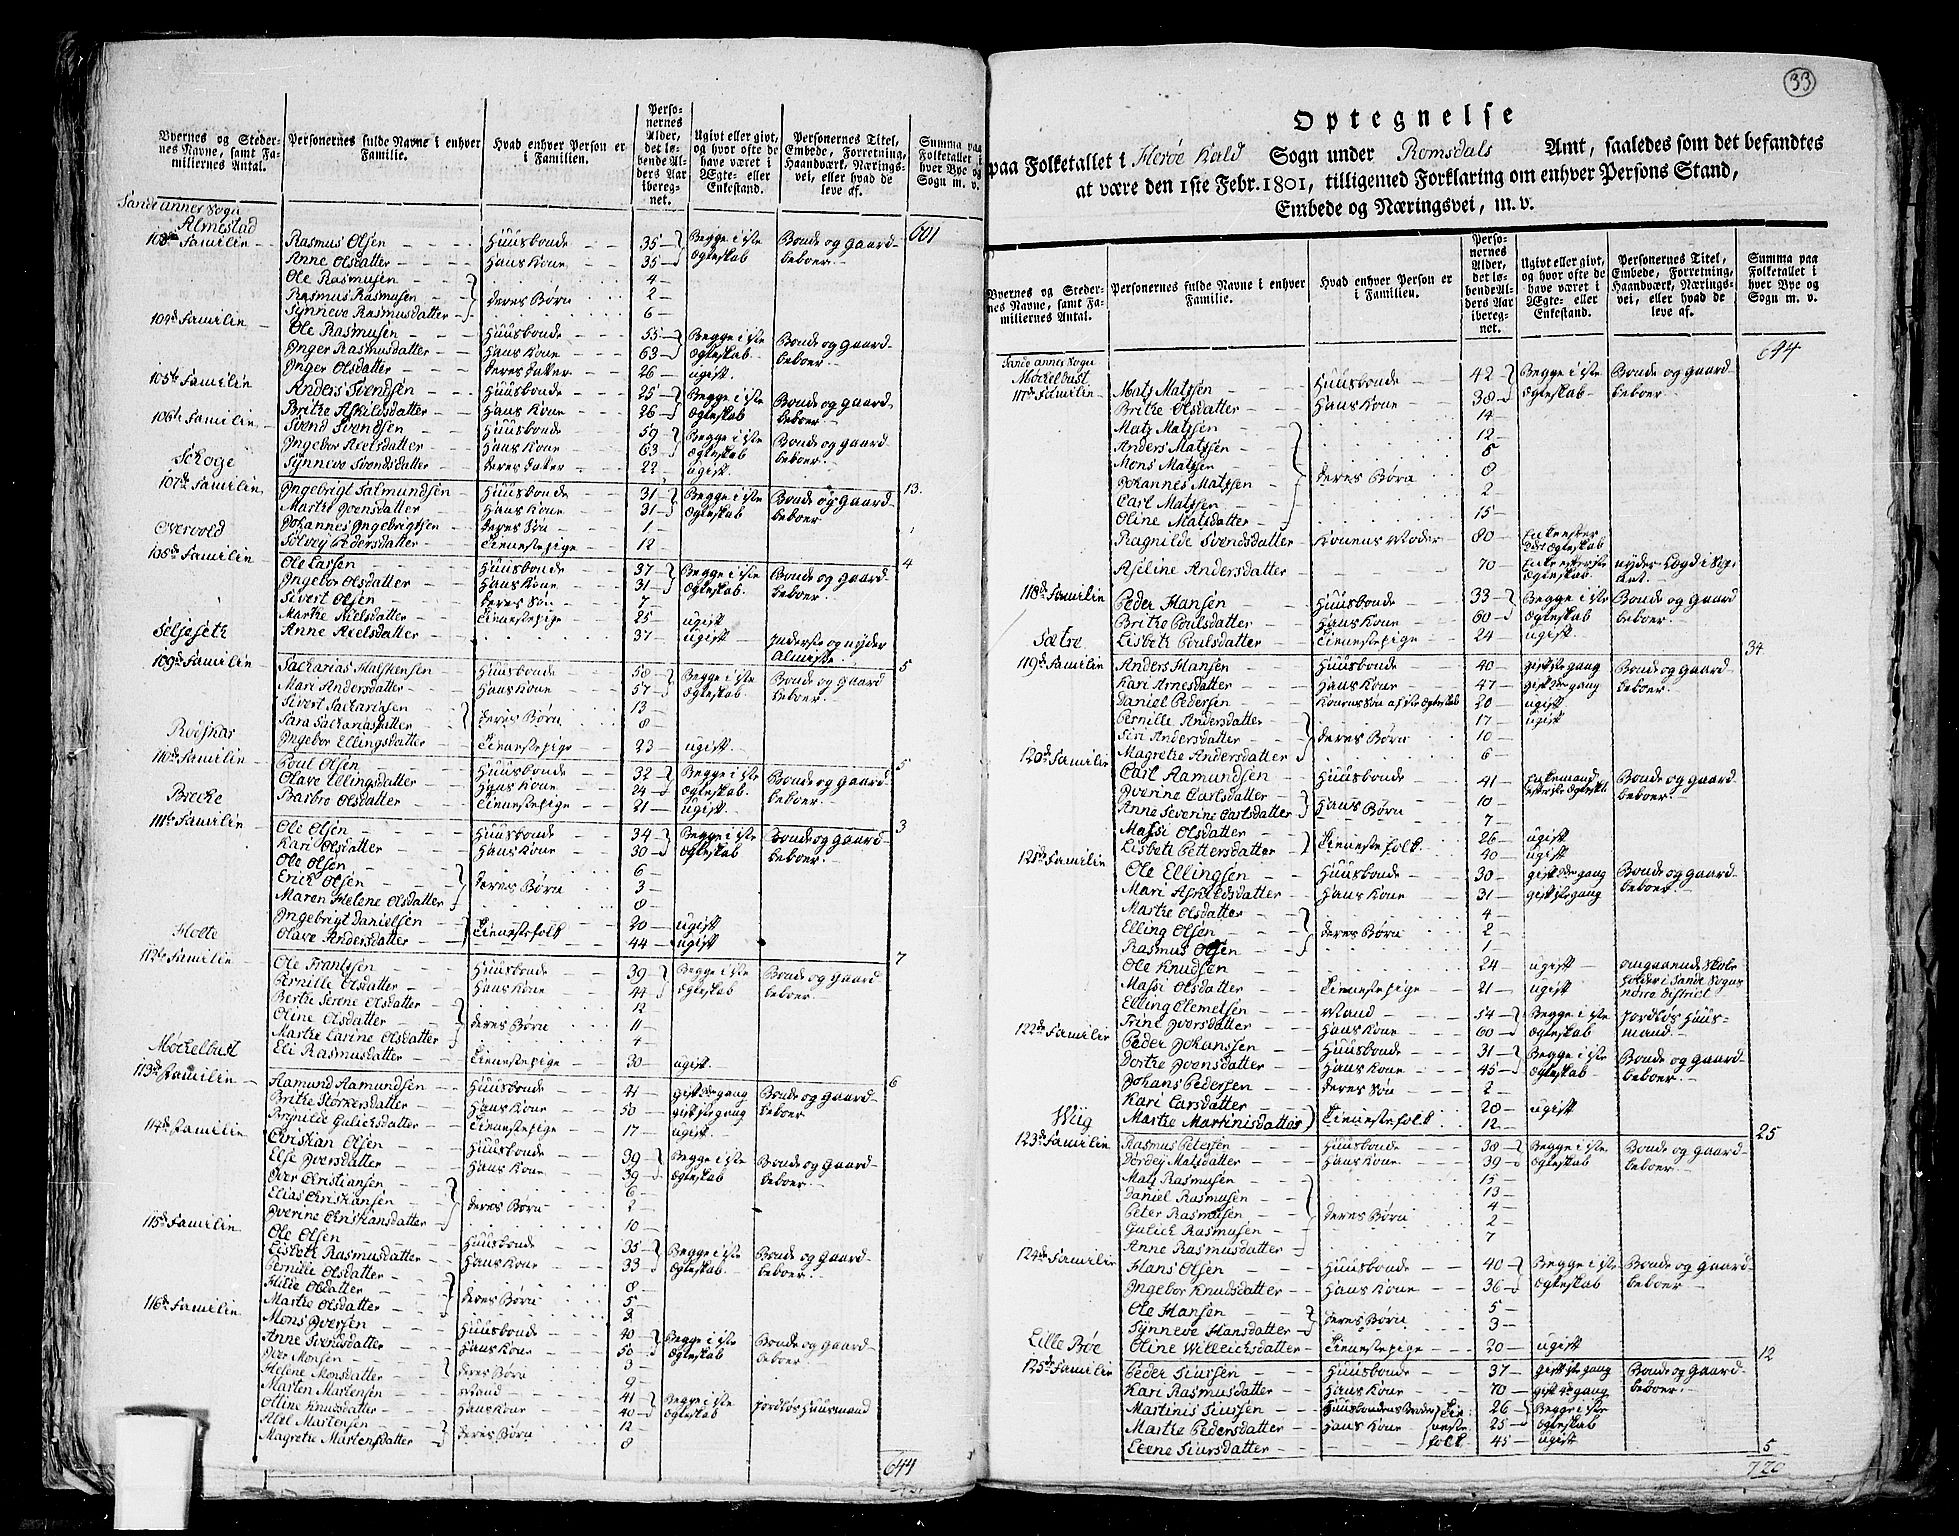 33
Byernes og Stedernes Navne, samt Familiernes Antal.
Personernes fulde Navne i enhver Familie.
Hvad enhver Person er i Familien.
Personernes Alder, det løbende Alders Aar iberegnet.
Ugivt eller givt, og hvor ofte de have været i Ægte- eller Enkestand.
Personernes Titel, Embede, Forretning, Haandværk, Næringsvei, eller hvad de leve af.
Summa paa Folketallet i hver Bye og Sogn m. v.
Sande anner Sogn
Almestad 601
103de Familie Rasmus Olsen Huusbonde 35 Begge i 1ste Bonde og Gaard-
Anne Olsdatter Hans Kone 35 Ægteskab beboer
Ole Rasmusen 4
Rasmus Rasmusen deres Børn 2
Synneve Rasmusdatter 6
104de Familie Ole Rasmusen Huusbonde 55 Begge i 1ste Bonde og Gaard-
Inger Rasmusdatter Hans Kone 63 Ægteskab beboer
Inger Olsdatter deres datter 26 ugift
105te Familie Anders Svendsen Huusbonde 25 Begge i 1ste Bonde og Gaard-
Brithe Askildsdatter Hans Kone 26 Ægteskab beboer
106te Familie Svend Svendsen Huusbonde 59 Begge i 1ste Bonde og Gaard-
Ingebor Axelsdatter Hans Kone 63 Ægteskab beboer
Synneve Svendsdatter deres datter 22 ugift
Schoge 13
107de Familie Ingebrigt Salmundsen Huusbonde 31 Begge i 1ste Bonde og Gaard-
Marthe Joensdatter Hans Kone 31 Ægteskab beboer
Johannes Ingebrigtsen deres Søn 1
Solvey Pedersdatter Tienestepige 12
Overvold 4
108de Familie Ole Larsen Huusbonde 37 Begge i 1ste Bonde og Gaard-
Ingebor Olsdatter Hans Kone 31 Ægteskab beboer
Sivert Olsen deres Søn 7
Marthe Nielsdatter Tienestepige 25 ugift
Anne Axelsdatter 37 ugift Inderste og nyder Almisse
Seljeseth 5
109de Familie Sacharias Halstensen Huusbonde 58 Begge i 1ste Bonde og Gaard-
Mari Andersdatter Hans Kone 57 Ægteskab beboer
Sivert Sachariasen deres Børn 13
Sara Sachariasdatter 8
Ingebor Ellingsdatter Tienestepige 23 ugift
Rødskar 5
110de Familie Poul Olsen Huusbonde 32 Begge i 1ste Bonde og Gaard-
Olave Ellingsdatter Hans Kone 24 Ægteskab beboer
Barbro Olsdatter Tienestepige 21 ugift
Brecke 3
111te Familie Ole Olsen Huusbonde 34 Begge i 1ste Bonde og Gaard-
Kari Olsdatter Hans Kone 30 Ægteskab beboer
Ole Olsen 6
Erick Olsen deres Børn 3
Maren Helene Olsdatter 8
Ingebrigt Danielsen Tienestefolk 20 ugift
Olave Andersdatter 44 ugift
Holte 7
112te Familie Ole Frantssen Huusbonde 39 Begge i 1ste Bonde og Gaard
Pernille Olsdatter Hans Kone 44 Ægteskab beboer
Berthe Serene Olsdatter 12
Oline Olsdatter deres Børn 11
Marthe Carine Olsdatter 4
Eli Rasmusdatter Tienestepige 30 ugift
Mochelbust 6
113de Familie Aamund Aamundsen Huusbonde 41 gift 2de gang Bonde og Gaard-
Brithe Storkersdatter Hans Kone 50 gift 1ste gang beboer
Brynilde Gulichsdatter Tienestepige 17 ugift
114de Familie Christian Olsen Huusbonde 39 Begge i 1ste Bonde og Gaard-
Else Iversdatter Hans Kone 39 Ægteskab beboer
Iver Christiansen 6
Elias Christiansen deres Børn 2
Iverine Christiansdatter 10
115de Familie Ole Olsen Huusbonde 35 Begge i 1ste Bonde og Gaard-
Lisbeth Rasmusdatter Hans Kone 33 Ægteskab beboer
Pernille Olsdatter 8
Hilde Olsdatter deres Børn 5
Marthe Olsdatter 3
116de Familie Mons Iversen Huusbonde 40 Begge i 1ste Bonde og Gaard-
Anne Svendsdatter Hans Kone 50 Ægteskab beboer
Iver Monsen deres Børn 3
Helene Monsdatter 9
Marten Martensen Mand 41 Begge i 1ste Jordløs Huusmand
Olline Knudsdatter Hans Kone 40 Ægteskab
Abel Martensen deres Børn 12
Magrethe Martensdatter 8
644
Optegnelse
paa Folketallet i Herøe Kald Sogn under Romsdals Amt, saaledes som det befandtes
at være den 1ste Febr. 1801, tilligemed Forklaring om enhver Persons Stand,
Embede og Næringsvei, m. v.
Byernes og Stedernes Navne, samt Familiernes Antal.
Personernes fulde Navne i enhver Familie.
Hvad enhver Person er i Familien.
Personernes Alder, det løbende Alders Aar iberegnet.
Ugivt eller givt, og hvor ofte de have været i Ægte- eller Enkestand.
Personernes Titel, Embede, Forretning, Haandværk, Næringsvei, eller hvad de leve af.
Summa paa Folketallet i hver Bye og Sogn m. v.
644
Sande annex Sogn
Mochelbust
117de Familie Mats Matssen Huusbonde 42 Begge i 1ste Bonde og Gaard-
Brithe Olsdatter Hans Kone 38 Ægteskab beboer
Mats Matssen 14
Anders Matssen 12
Mons Matssen 5
Johannes Matssen deres Børn 8
Carl Matssen 2
Oline Matsdatter 15
Ragnilde Svendsdatter Konens Moder 80 Enke efter Ægteskab
Aseline Andersdatter 70 Enke efter 1ste Ægteskab nyder Lægd i Sognet
118de Familie Peder Hansen Huusbonde 33 Begge i 1ste Bonde og Gaard
Brithe Poulsdatter Hans Kone 60 Ægteskab beboer
Lisbeth Poulsdatter Tienestepige 24 ugift
Sætre 34
119de Familie Anders Hansen Huusbonde 40 gift 1ste gang Bonde og Gaard-
Kari Arnesdatter Hans Kone 47 gift 2de gang beboer
Daniel Pedersen Konens Søn af 1ste Ægteskab 20 ugift
Pernille Andersdatter 17 ugift
Siri Andersdatter deres Børn 10
Magrethe Andersdatter 6
120de Familie Carl Aamundsen Huusbonde 41 Enkemand efter 1ste Ægteskb. Bonde og Gaard-
Iverine Carlsdatter Hans Børn 10 beboer
Anne Severine Carlsdatter 7
Massi Olsdatter Tienestefolk 26 ugift
Lisbeth Pettersdatter 40 ugift
121de Familie Ole Ellingsen Huusbonde 30 gift 2de gang Bonde og Gaard-
Mari Askildsdatter Hans Kone 31 gift 1ste gang beboer
Marthe Olsdatter 4
Elling Olsen deres Børn 2
Rasmus Olsen 1
Ole Knudsen 24 ugift omgaaende Skoleholder i Sande Sogns
Massi Olsdatter Tienestepige 21 ugift nordre District
Elling Clemetsen Mand 54 Begge i 1ste Jordløs Huus-
Trine Iversdatter Hans Kone 60 Ægteskab mand
122de Familie Peder Johanssen Huusbonde 31 Begge i 1ste Bonde og Gaard-
Dorthe Joensdatter Hans Kone 45 Ægteskab beboer
Johans Pedersen deres Søn 2
Kari Larsdatter Tienestefolk 20 ugift
Marthe Martinisdatter 12
Wiig 25
123de Familie Rasmus Petersen Huusbonde 38 Begge i 1ste Bonde og Gaard-
Dordey Matsdatter Hans Kone 39 Ægteskab beboer
Mats Rasmusen 15
Daniel Rasmusen 13
Peter Rasmusen deres Børn 4
Gulich Rasmusen 2
Anne Rasmusdatter 7
124de Familie Hans Olsen Huusbonde 40 Begge i 1ste Bonde og Gaard
Ingebor Knudsdatter Hans Kone 36 Ægteskab beboer
Ole Hansen deres Børn 5
Synneve Hansdatter 3
Oline Willeichsdatter Tienestepige 20 ugift
Lille Bøe 12
125de Familie Peder Siursen Huusbonde 37 gift 1ste gang Bonde og Gaard-
Kari Rasmusdatter Hans Kone 70 gift 2de gang beboer
Martinis Siursen Huusbondens Broder Tie- 26 Begge i 1ste
Marthe Pedersdatter Hans Kone neste 25 Ægteskab
Leene Siursdatter folk 45 ugift
5
720